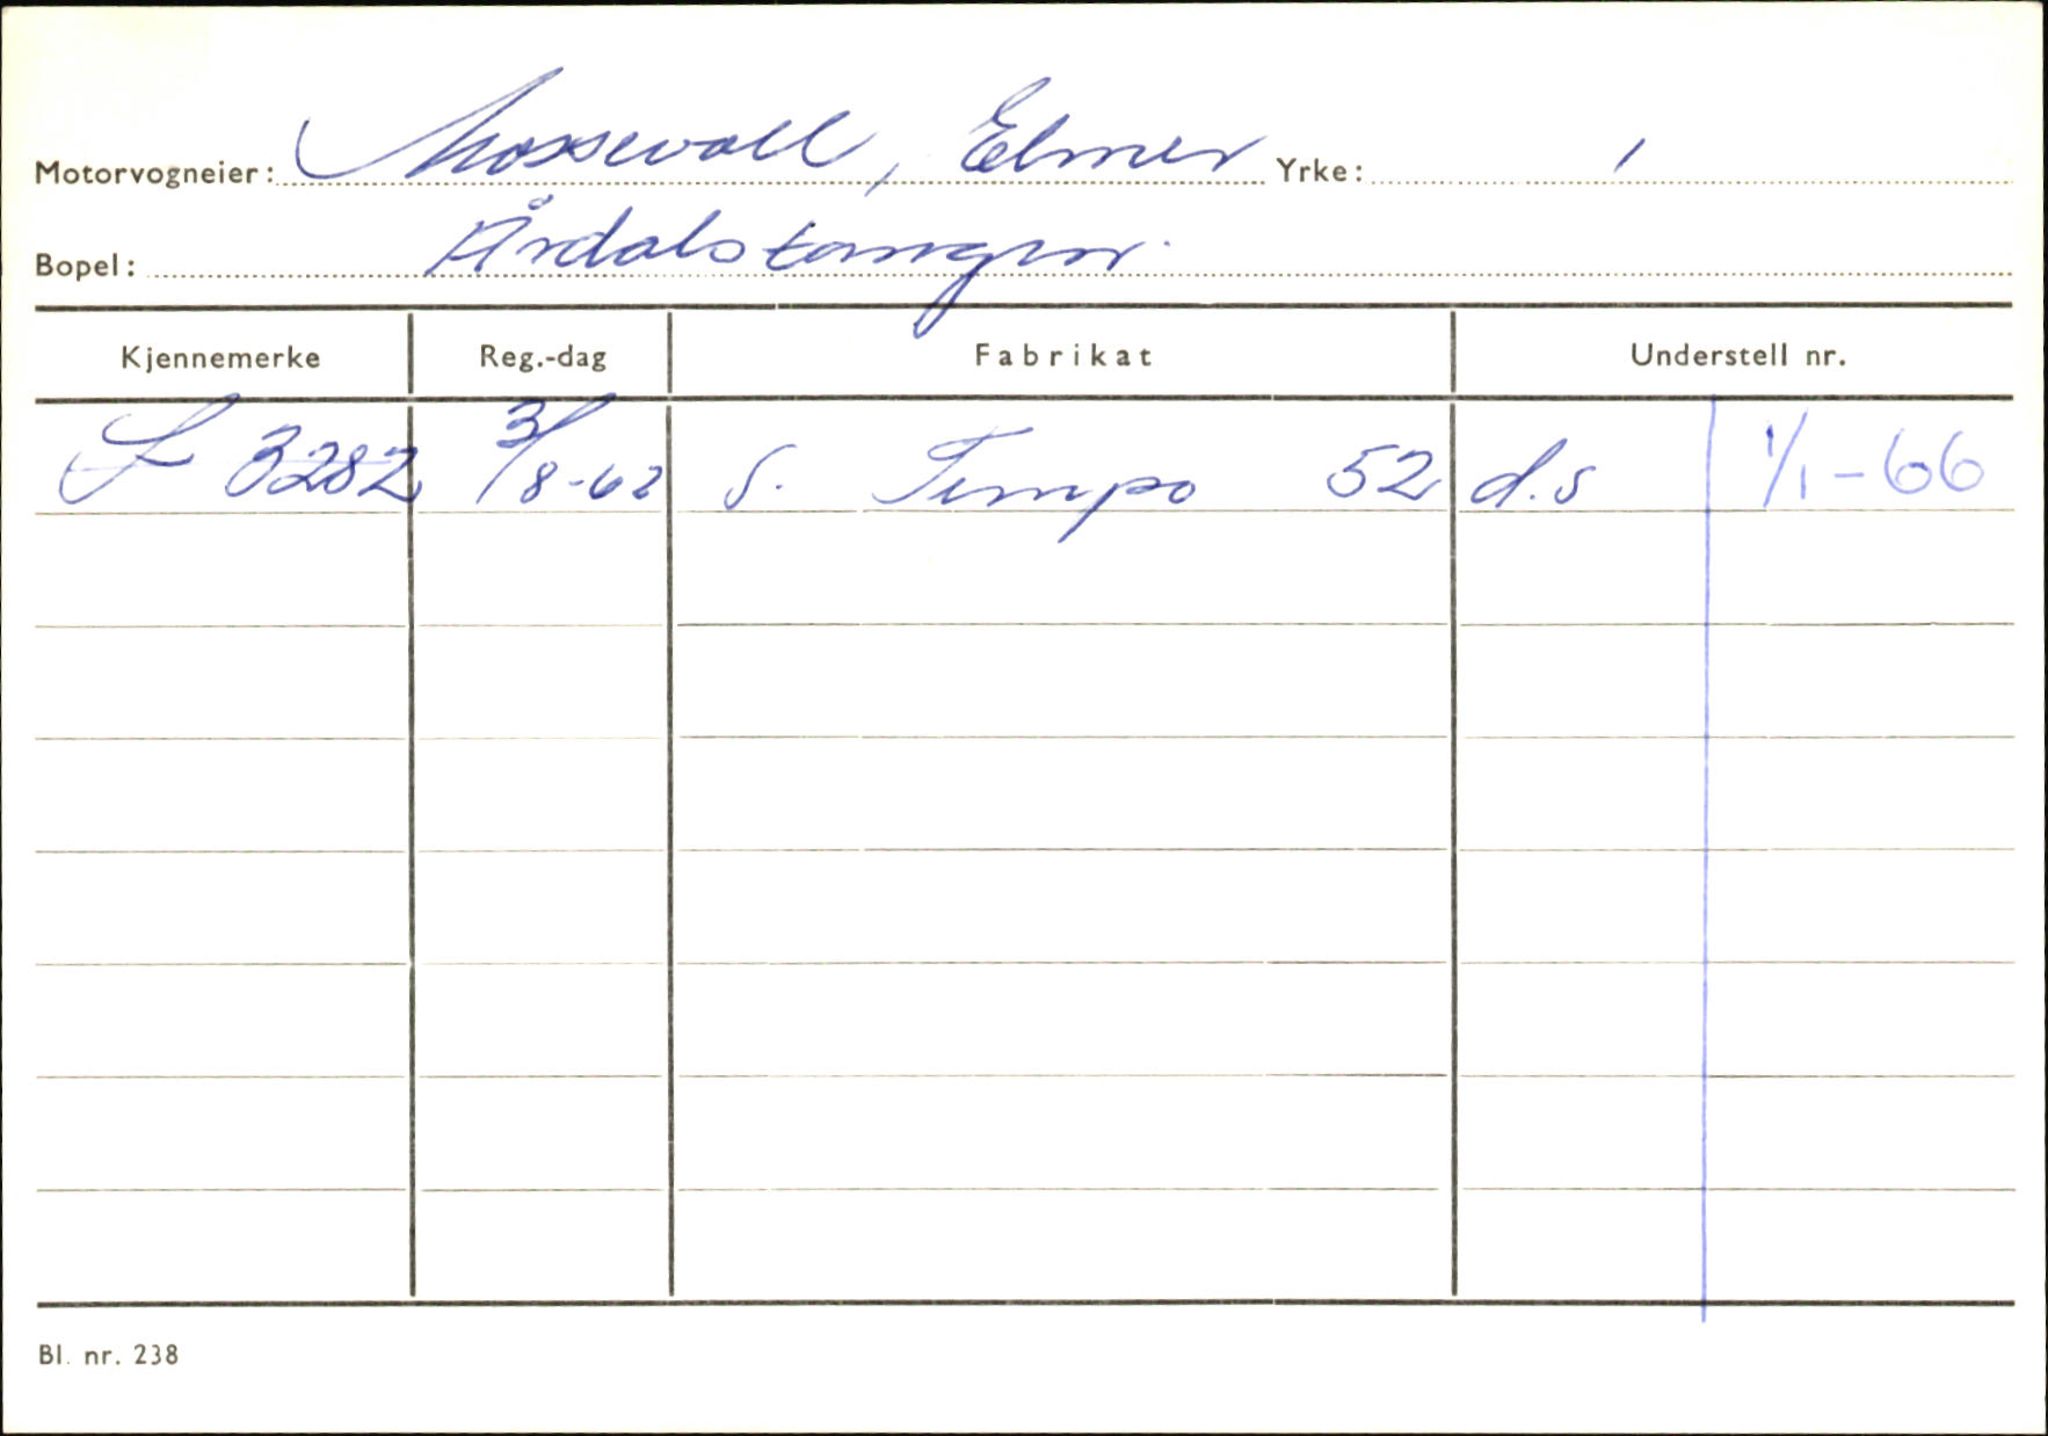 Motorvogneier: Mossevoll, Elmer Yrke:
Bopel: Årdalstangen.
Kjennemerke Reg.-dag Fabrikat Understell nr.
S 3282 3/8-62 S. Tempo 52 d.s 1/1-66
Bl. nr. 238